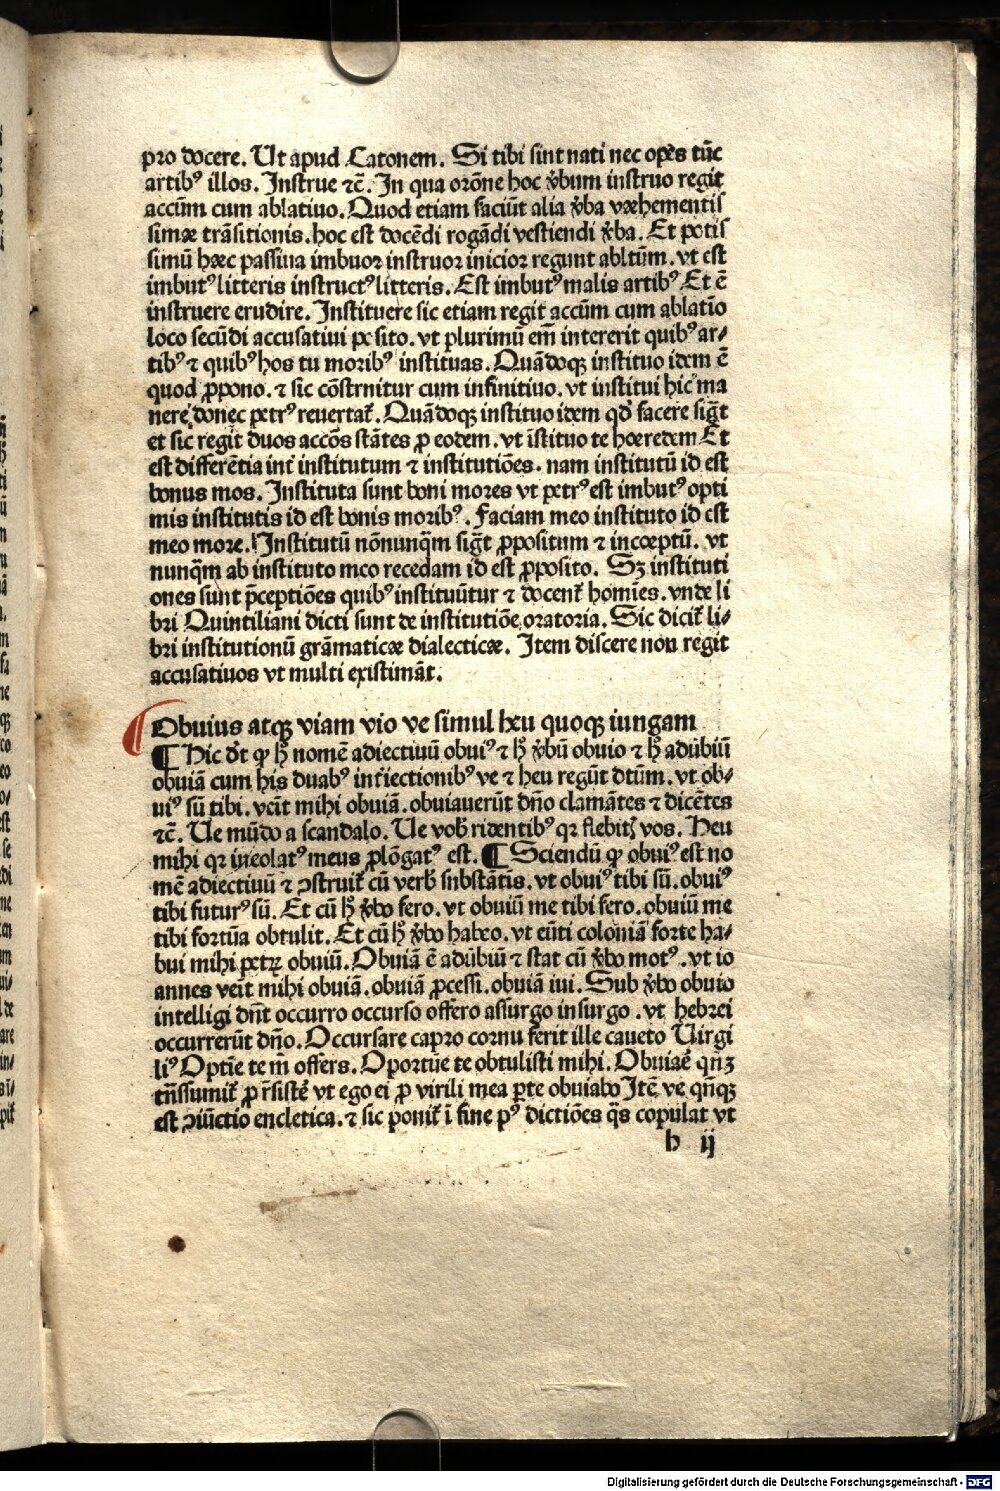 pro docere. Ut apud Catonem. Si tibi sint nati nec opes tūc
artibꝰ illos. Instrue ⁊c̄. In qua or̄one hoc v̾bum instruo regit
accūm cum ablatiuo. Quod etiam faciūt alia v̾ba væhementiſ
simæ trāsitionis. hoc est docēdi rogādi vestiendi v̾ba. Et potiſ
simū hæc passiua imbuor instruor inicior regunt abltūm. vt est
imbutꝰ litteris instructꝰ litteris. Est imbutꝰ malis artibꝰ Et ē
instruere erudire. Instituere sic etiam regit accūm cum ablatīo
loco secūdi accusatiui posito. vt plurimū em̄ intererit quibꝰ ar⸗
tibꝰ ⁊ quibꝰ hos tu moribꝰ instituas. Quādoqꝫ instituo idem ē
quod ꝓpono. ⁊ sic cōstrnitur cum infinitiuo. vt institui hic ma
nere donec petrꝰ reuertat᷑. Quādoqꝫ instituo idem qd̾ facere sigt̄
et sic regit duos accōs stātes ꝓ eodem. vt īstituo te hœredem Et
est differētia int̾ institutum ⁊ institutiōes. nam institutū id est
bonus mos. Instituta sunt boni mores vt petrꝰ est imbutꝰ opti
mis institutis id est bonis moribꝰ. Faciam meo instituto id est
meo more. Institutū nōnunqm̄ sigt̄ ꝓpositum ⁊ incœptū. vt
nunqm̄ ab instituto meo recedam id est ꝓposito. Sꝫ instituti
ones sunt p̄ceptiōes quibꝰ instituūtur ⁊ docent᷑ homīes. vnde li
bri Quintiliani dicti sunt de institutiōe oratoria. Sic dicit᷑ li⸗
bri institutionū grāmaticæ dialecticæ. Item discere non regit
accusatiuos vt multi existimāt.
Obuius atqꝫ viam vio ve simul heu quoqꝫ iungam
¶ Hic dt̄ ꝙ h̾ nomē adiectiuū obuiꝰ ⁊ h̾ v̾bū obuio ⁊ h̾ adūbiū
obuiā cum his duabꝰ int̾iectionibꝰ ve ⁊ heu regūt dtūm. vt ob⸗
uiꝰ sū tibi. veīt mihi obuiā. obuiauerūt dn̄o clamātes ⁊ dicētes
⁊c̄. Ue mūdo a scandalo. Ue vob̾ ridentibꝰ qꝛ flebitꝭ vos. Heu
mihi qꝛ incolatꝰ meus ꝓlōgatꝰ est. ¶ Sciendū ꝙ obuiꝰ est no
mē adiectiuū ⁊ ꝯstruit᷑ cū verb̾ snbstātīs. vt obuiꝰ tibi sū. obuiꝰ
tibi futurꝰ sū. Et cū h̾ v̾bo fero. vt obuiū me tibi fero. obuiū me
tibi fortūa obtulit. Et cū h̾ v̾bo habeo. vt eūti coloniā forte ha⸗
bui mihi petrꝝ obuiū. Obuiā ē adūbiū ⁊ stat cū v̾bo motꝰ. vt io
annes veīt mihi obuiā. obuiā ꝓcessi. obuiā iui. Sub v̾bo obuio
intelligi dn̄t occurro occurso offero assurgo insurgo. vt hebrei
occurrerūt dn̄o. Occursare capro cornu ferit ille caueto Uirgi
liꝰ Optīe te m̄ offers. Oportūe te obtulisti mihi. Obuiaē qn̄ꝫ
tn̄ssumit᷑ ꝓ r̄sistē vt ego ei ꝓ virili mea ꝑte obuiabo Itē ve qn̄qꝫ
est ꝯiūctio encletica. ⁊ sic ponit᷑ ī fine pꝰ dictiōes q̄s copulat vt
b ij
Digitalisierung gefördert durch die Deutsche Forschungsgemeinschaft - DFG